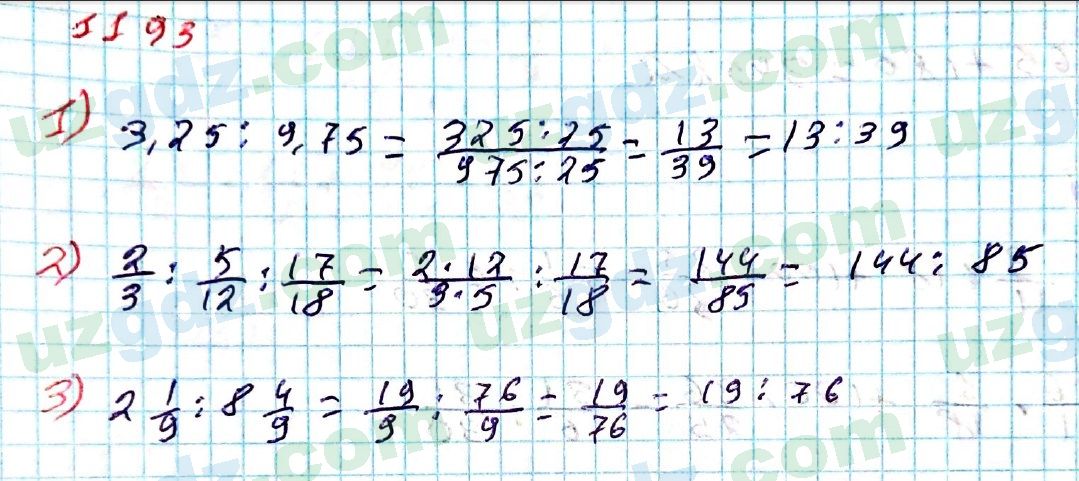 1193
1) 3,25 : 9,75 = 325:25/975:25 = 13/39 = 13 : 39
2) 2/3 : 5/12 : 17/18 = 2·12/3·5 : 17/18 = 144/85 = 144 : 85
3) 2 1/9 : 8 4/9 = 19/9 : 76/9 = 19/76 = 19 : 76
uzgdz.com
uzgdz.com
uzgdz.com
uzgdz.com